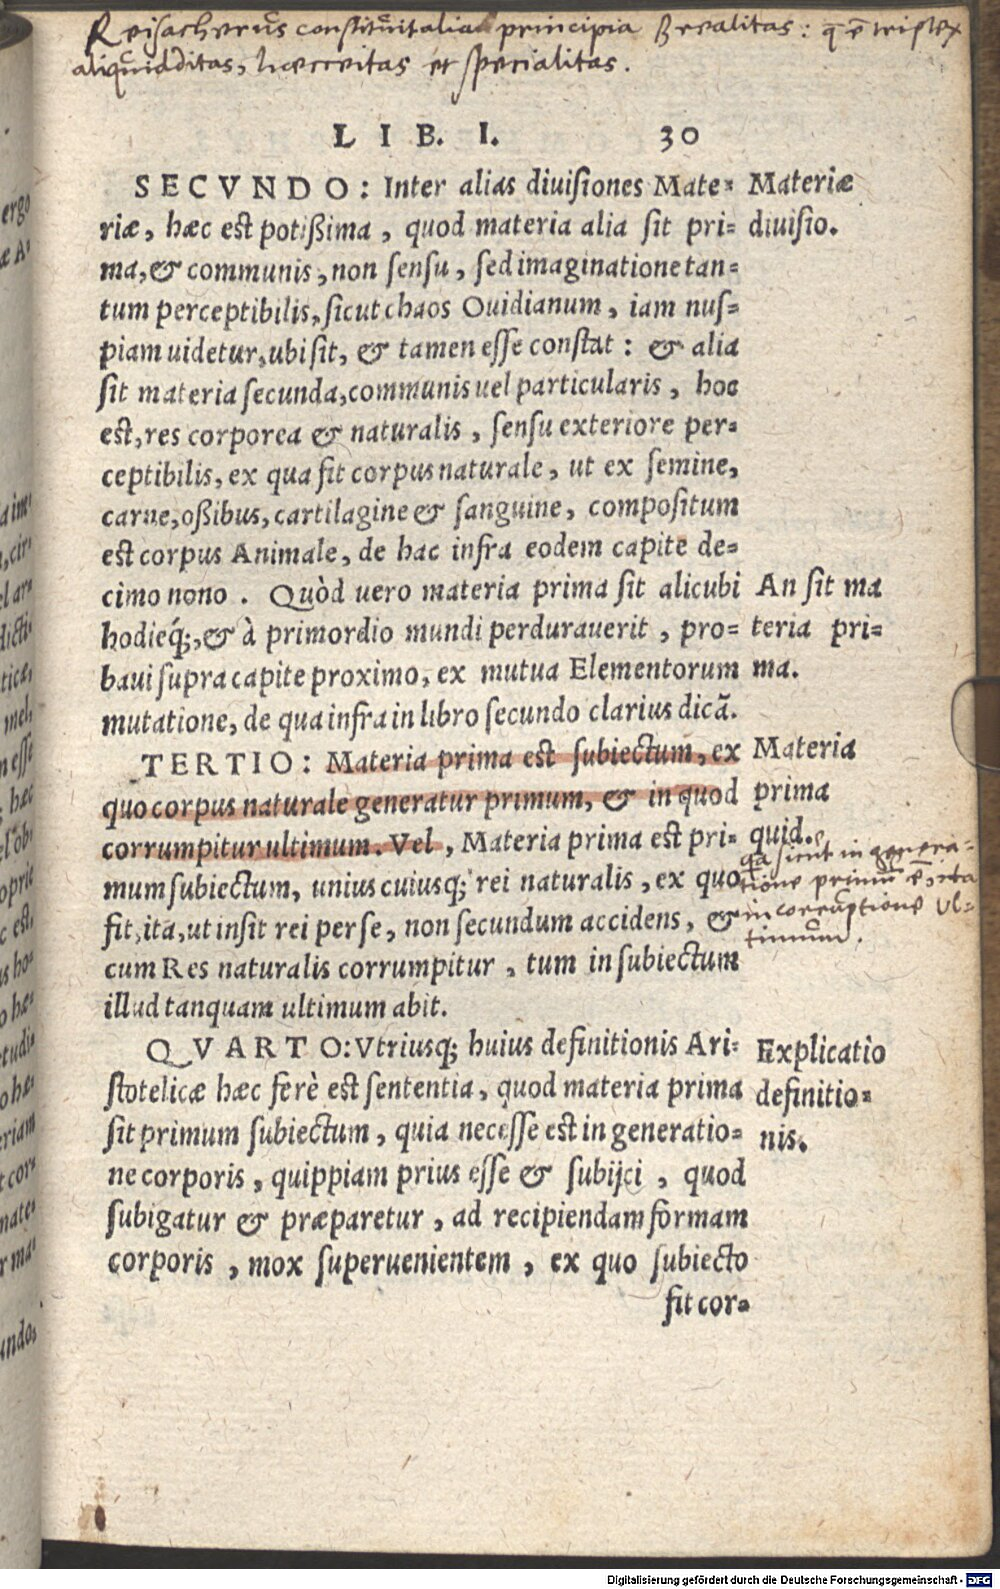 Reisacherus constituit alia principia realitas: q̄ ē triplex
aliquidditas, hæcceitas et specialitas.
LIB. I. 30
SECVNDO: Inter alias diuisiones Mate=
riæ, hæc est potißima, quod materia alia sit pri=
ma, & communis, non sensu, sed imaginatione tan=
tum perceptibilis, sicut chaos Ouidianum, iam nus=
piam uidetur, ubi sit, & tamen esse constat: & alia
sit materia secunda, communis uel particularis, hoc
est, res corporea & naturalis, sensu exteriore per=
ceptibilis, ex qua fit corpus naturale, ut ex semine,
carne, oßibus, cartilagine & sanguine, compositum
est corpus Animale, de hac infra eodem capite de=
cimo nono. Quòd uero materia prima sit alicubi
hodieq́;, & à primordio mundi perdurauerit, pro=
baui supra capite proximo, ex mutua Elementorum
mutatione, de qua infra in libro secundo clarius dicã.
TERTIO: Materia prima est subiectum, ex
quo corpus naturale generatur primum, & in quod
corrumpitur ultimum. Vel, Materia prima est pri=
mum subiectum, unius cuiusq; rei naturalis, ex quo
fit, ita, ut insit rei per se, non secundum accidens, &
cum Res naturalis corrumpitur, tum in subiectum
illud tanquam ultimum abit.
QVARTO: Vtriusq; huius definitionis Ari=
stotelicæ hæc ferè est sententia, quod materia prima
sit primum subiectum, quia necesse est in generatio=
ne corporis, quippiam prius esse & subijci, quod
subigatur & præparetur, ad recipiendam formam
corporis, mox superuenientem, ex quo subiecto
fit cor=
Materiæ
diuisio.
An sit ma
teria pri=
ma.
Materia
prima
quid.
sicut in genera=
tione primū ē, ita
in corruptione vl=
timum.
Explicatio
definitio=
nis.
ergo
æ A=
undo,
Digitalisierung gefördert durch die Deutsche Forschungsgemeinschaft - DFG